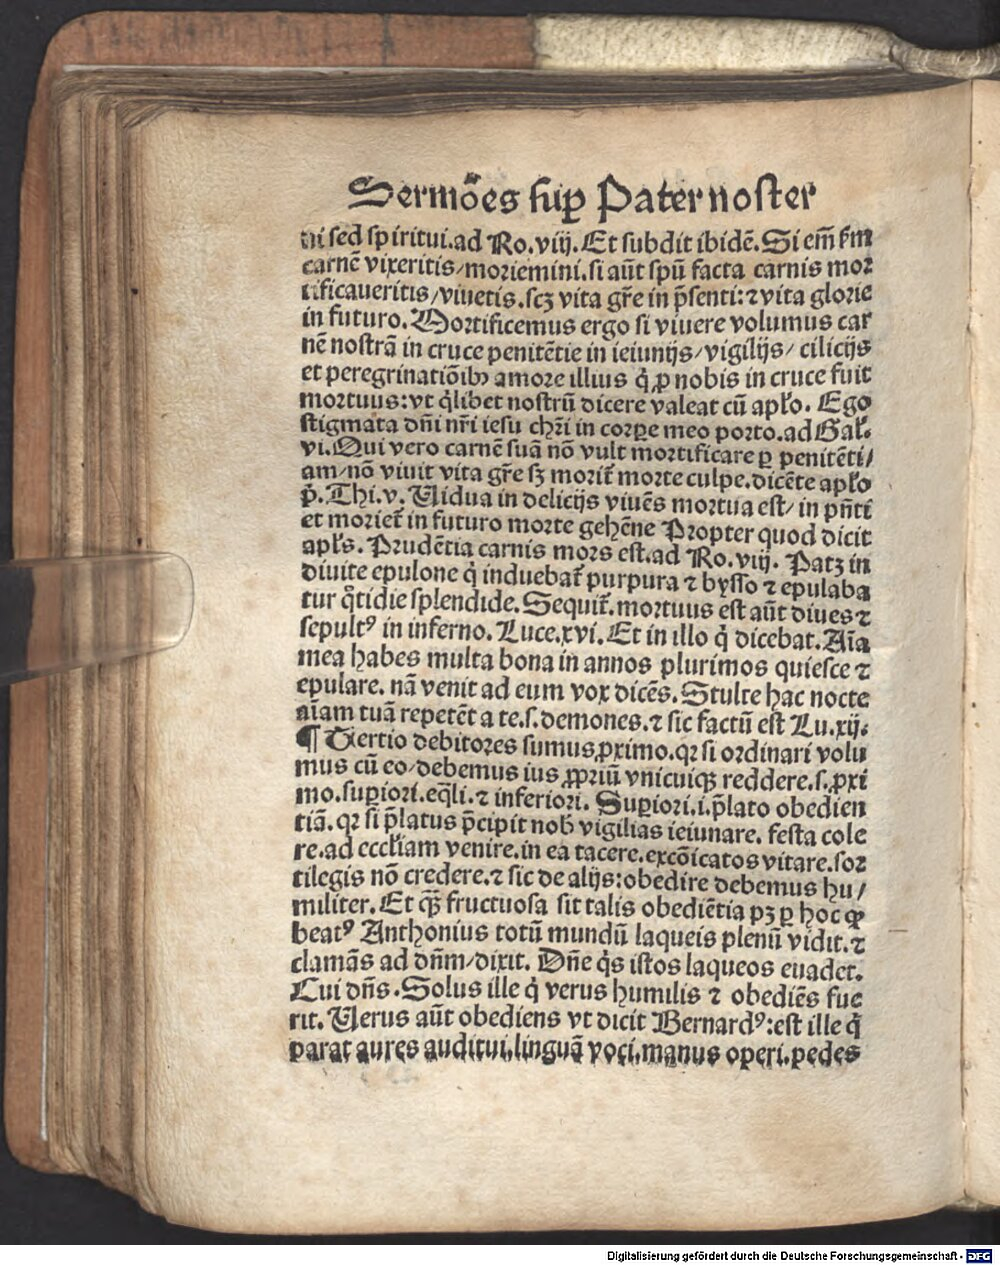 Sermões suꝑ Pater noster
ni sed spiritui.ad Ro.viij.Et subdit ibidē.Si em̄ s̄m
carnē vixeritis/moriemini.si aūt spū facta carnis mor
tificaueritis/viuetis.scꝫ vita gr̄e in p̄senti:⁊ vita glorie
in futuro.Mortificemus ergo si viuere volumus car
nē nostrā in cruce penitētie in ieiunijs/vigilijs/ cilicijs
et peregrinatiōibꝫ amore illius q̇ ꝓ nobis in cruce fuit
mortuus:vt q̇libet nostrū dicere valeat cū apl̄o. Ego
stigmata dn̄i nr̄i iesu chr̄i in corꝑe meo porto.ad Gal̄.
vi.Qui vero carnē suā nō vult mortificare ꝑ penitēti/
am/nō viuit vita gr̄e sꝫ morit̄ morte culpe.dicēte apl̄o
p̄.Thi.v. Uidua in delicijs viuēs mortua est/ in pn̄ti
et moriet̄ in futuro morte gehēne Propter quod dicit
apl̄s. Prudētia carnis mors est.ad Ro.viij. Patꝫ in
diuite epulone q̇ induebat̄ purpura ⁊ bysso ⁊ epulaba
tur q̄tidie splendide.Sequit̄.mortuus est aūt diues ⁊
sepultꝰ in inferno. Luce.xvi. Et in illo q̇ dicebat. Aīa
mea habes multa bona in annos plurimos quiesce ⁊
epulare. nā venit ad eum vox dicēs. Stulte hac nocte
aīam tuā repetēt a te.s.demones.⁊ sic factū est Lu.xij.
¶ Tertio debitores sumus ꝓximo.qꝛ si ordinari volu
mus cū eo/debemus ius ꝓpriū vnicuiqꝫ reddere.s.ꝓxi
mo.suꝑiori.eq̄li.⁊ inferiori. Suꝑiori.i.p̄lato obedien
tiā.qꝛ si p̄latus p̄cipit nob̄ vigilias ieiunare. festa cole
re.ad eccl̄iam venire.in ea tacere.excōicatos vitare.sor
tilegis nō credere.⁊ sic de alijs:obedire debemus hu/
militer. Et qꝫ̄ fructuosa sit talis obediētia pꝫ ꝑ hoc ꝙ
beatꝰ Anthonius totū mundū laqueis plenū vidit.⁊
clamās ad dn̄m/dixit. Dn̄e q̇s istos laqueos euadet.
Cui dn̄s.Solus ille q̇ verus humilis ⁊ obediēs fue
rit. Uerus aūt obediens vt dicit Bernardꝰ:est ille q̇
parat aures auditui.linguā voci.manus operi.pedes
Digitalisierung gefördert durch die Deutsche Forschungsgemeinschaft - DFG